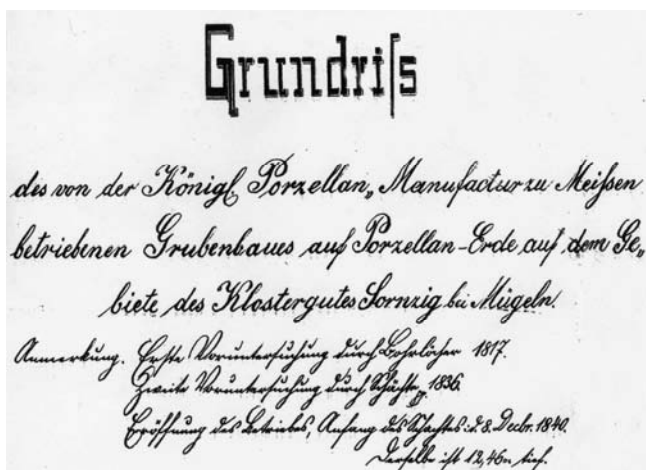 Grundriſs
des von der Königl. Porzellan„ Manufactur zu Meiſsen
betriebenen Grubenbaues auf Porzellan-Erde auf dem Ge„
biete des Klostergutes Sornzig bei Mügeln.
Anmerkung. Erste Voruntersuchung durch Bohrlöcher 1817.
Zweite Voruntersuchung durch Schächte 1836.
Eröffnung des Betriebes, Anfang des Schachtes: d. 8. Decbr. 1840.
Derselbe ist 12,46m tief.